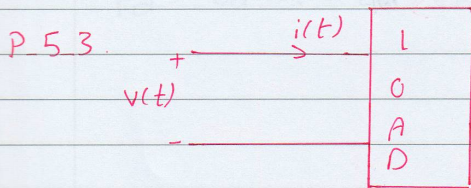 P_5_3.
i(t)
+
v(t)
-
L
O
A
D